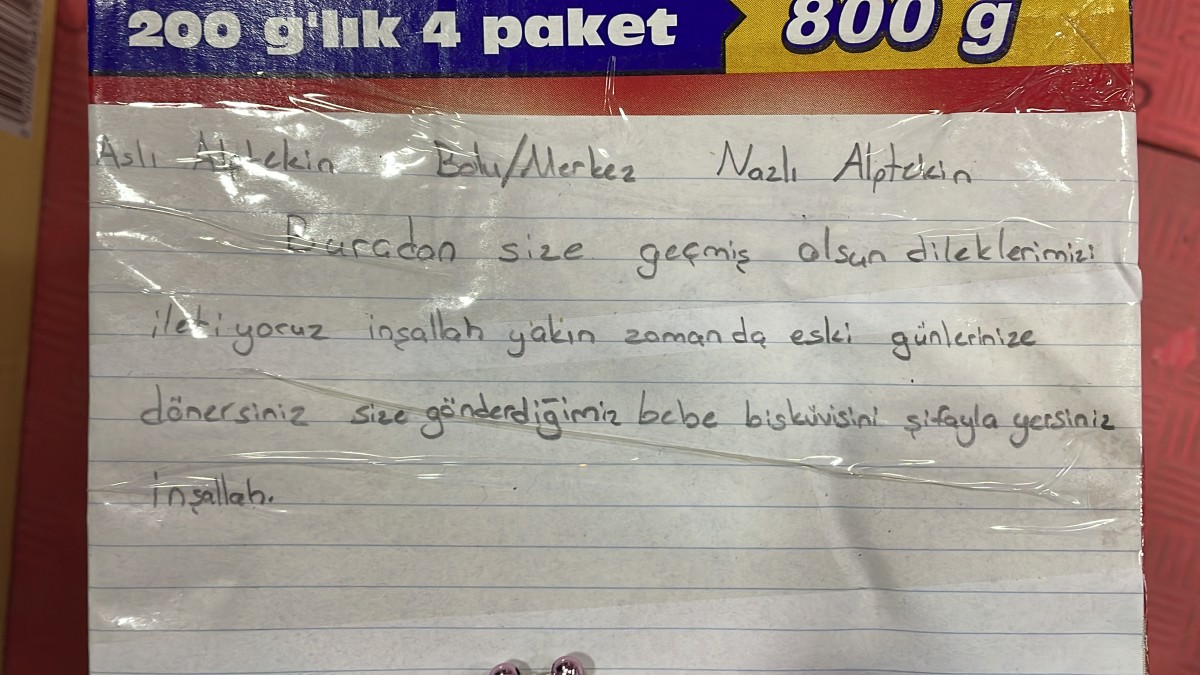 200 g'lık 4 paket 800 g
Aslı Alptekin Bolu/Merkez Nazlı Alptekin
Buradan size geçmiş olsun dileklerimizi
iletiyoruz inşallah yakın zamanda eski günlerinize
dönersiniz size gönderdiğimiz bebe bisküvisini şifayla yersiniz
inşallah.